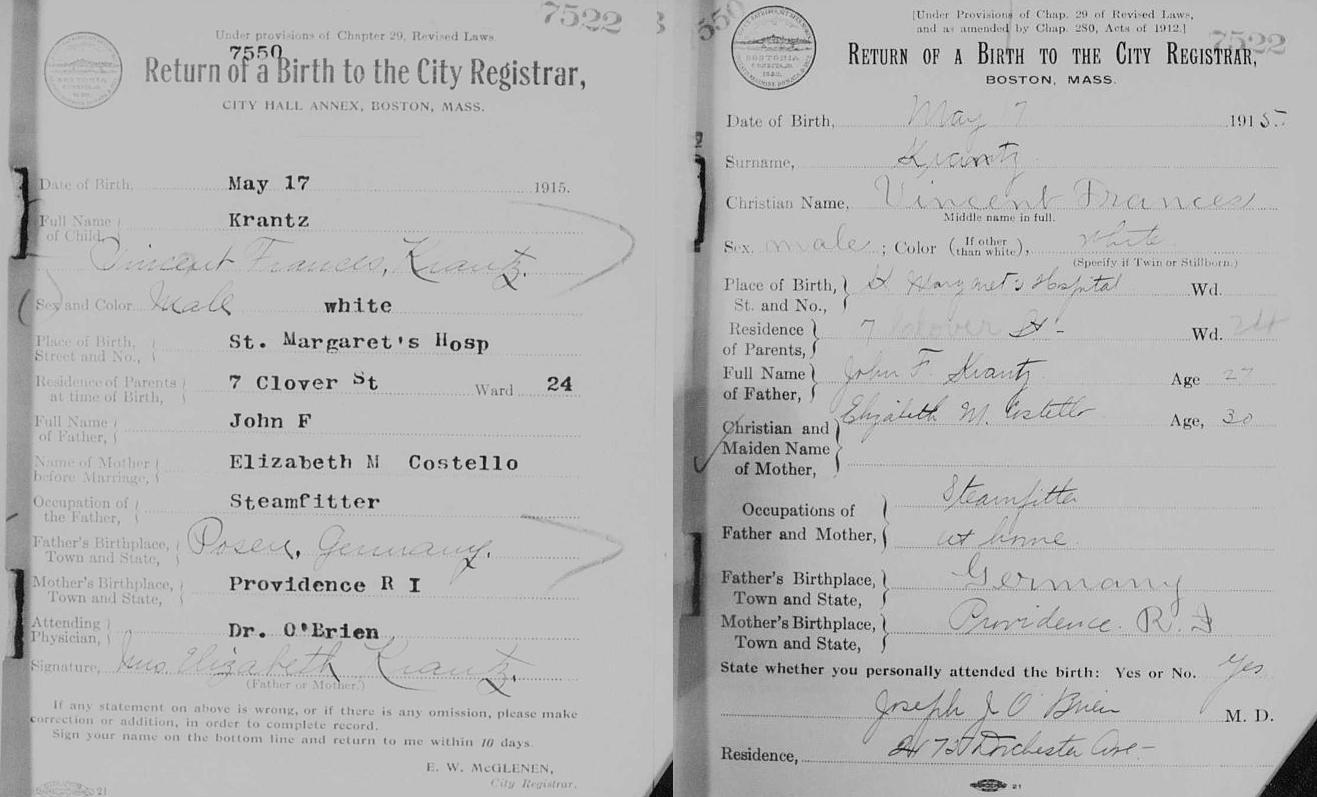 7522
Under provisions of Chapter 29, Revised Laws
7550
Return of a Birth to the City Registrar,
CITY HALL ANNEX, BOSTON, MASS.
Date of Birth, May 17 1915.
Full Name of Child, Krantz
Vincent Frances, Krantz.
Sex and Color Male white
Place of Birth, Street and No., St. Margaret's Hosp
Residence of Parents at time of Birth, 7 Clover St Ward 24
Full Name of Father, John F
Name of Mother before Marriage, Elizabeth M Costello
Occupation of the Father, Steamfitter
Father's Birthplace, Town and State, Posen, Germany.
Mother's Birthplace, Town and State, Providence R I
Attending Physician, Dr. O'Brien
Signature, Mrs. Elizabeth Krantz.
(Father or Mother.)
If any statement on above is wrong, or if there is any omission, please make
correction or addition, in order to complete record.
Sign your name on the bottom line and return to me within 10 days.
E. W. McGLENEN,
City Registrar.
21
550
7522
[Under Provisions of Chap. 29 of Revised Laws,
and as amended by Chap. 280, Acts of 1912.]
RETURN OF A BIRTH TO THE CITY REGISTRAR,
BOSTON, MASS.
Date of Birth, May 7 1915
Surname, Krantz
Christian Name, Vincent Frances
Middle name in full.
Sex, male; Color (If other than white), white
(Specify if Twin or Stillborn.)
Place of Birth, St. and No., St Margaret's Hospital Wd.
Residence of Parents, 7 Clover St - Wd. 24
Full Name of Father, John F Krantz Age 27
Christian and Maiden Name of Mother, Elizabeth M. Costello Age, 30
Occupations of Father and Mother, Steamfitter
at home
Father's Birthplace, Town and State, Germany
Mother's Birthplace, Town and State, Providence. R. I
State whether you personally attended the birth: Yes or No. Yes
Joseph J O'Brien M. D.
Residence, Dorchester Ave-
21